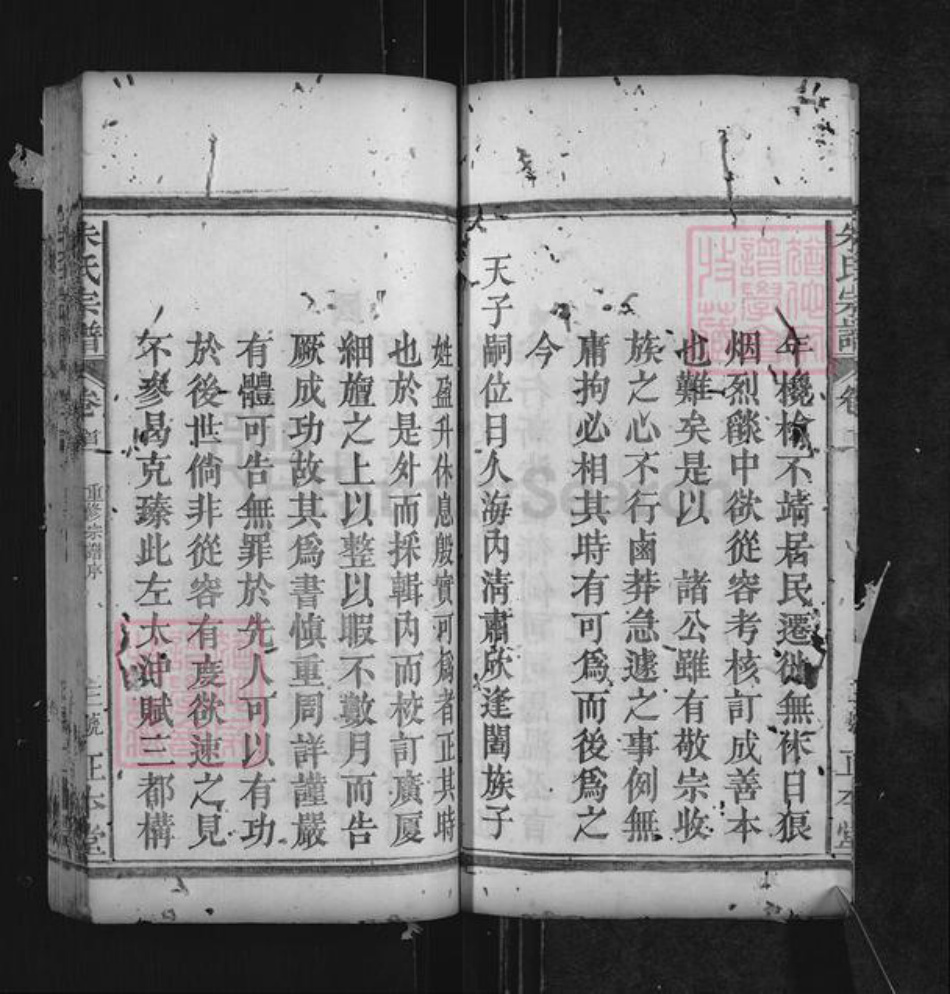 年欃槍不靖居民遷徙無休日狼
烟烈燄中欲從容考核訂成善本
也難矣是以 諸公雖有敬宗收
族之心不行鹵莽急遽之事例無
膚拘必相其時有可為而後為之
今
天子嗣位日久海內清肅欣逢闔族子
姓盈升休息殷實可為者正其時
也於是外而採輯內而校訂廣厦
細旃之上以整以暇不數月而告
厥成功故其為書慎重周詳謹嚴
有體可告無罪於先人可以有功
於後世倘非從容有度欲速之見
不參曷克臻此左太沖賦三都構
朱氏宗譜
卷首
重修宗譜序
三號
正本堂